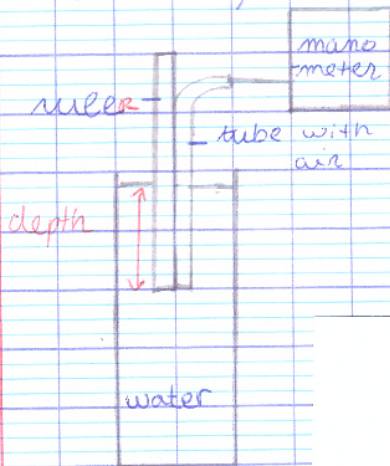 mano
-meter
ruleR
tube with
air
depth
water